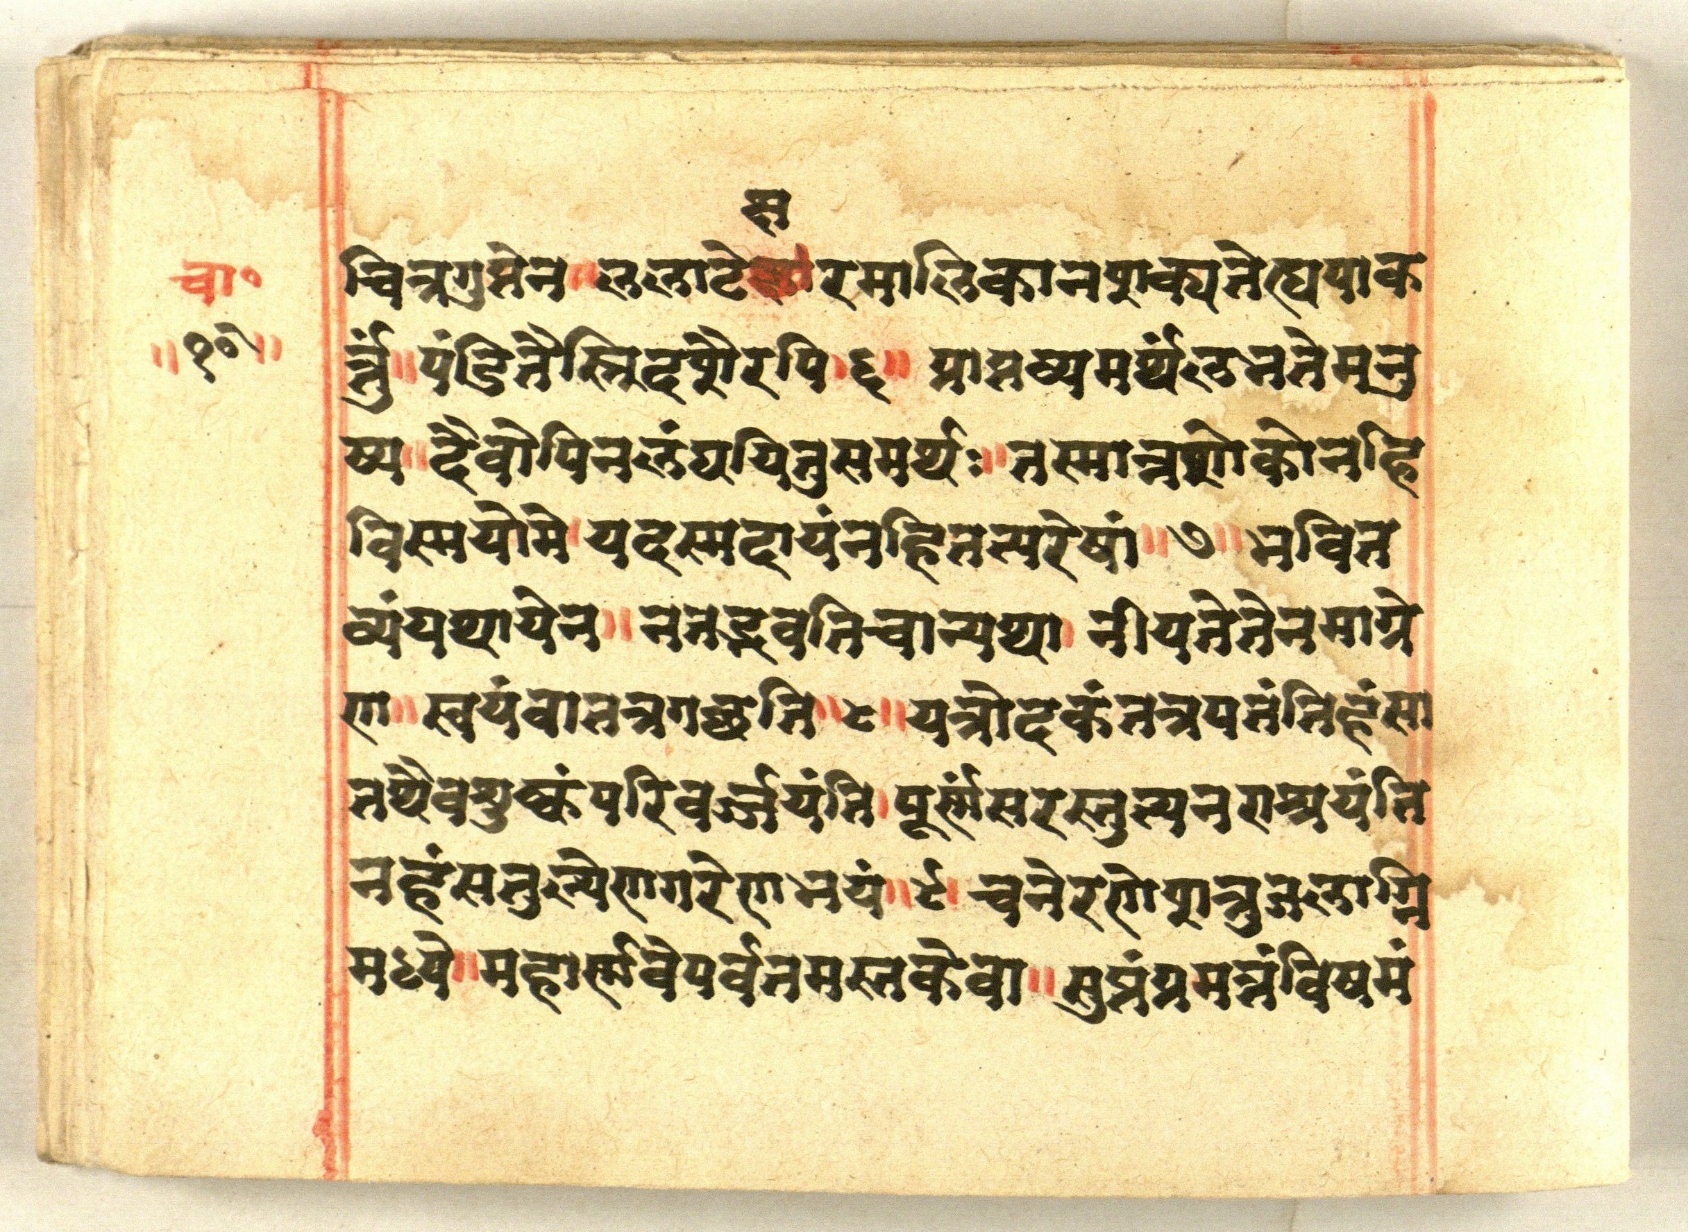 क्ष
चा॰
॥१०॥
चित्रगुप्तेन॥ललाटेक्षारमालिकानशक्यतेत्यपाक
र्त्तुं॥पंडितैस्त्रिदशैरपि।६॥प्राप्तव्यमर्थंलनतेमनु
ष्य॥दैवोपिनलंघयितुसमर्थः॥तस्मान्नशोकोनहि
विस्मयोमे।यदस्मदायंनहितत्परेषां॥७॥भवित
व्यंयथायेन॥नतद्भवतिचान्यथा।नीयतेतेनमाग्रे
ण॥स्वयंवातत्रगछति॥८॥यत्रोदकंतत्रपतंतिहंसा
तथैवशुष्कंपरिवर्ज्जयंति।पूर्णंसरस्तुल्यनराश्रयंति
नहंसतुल्येणगरेणभयं॥९।वनेरणेशत्रुजलाग्नि
मध्ये॥महार्णवेपर्वतमस्तकेवा॥सुप्तंप्रमत्तंविषमं